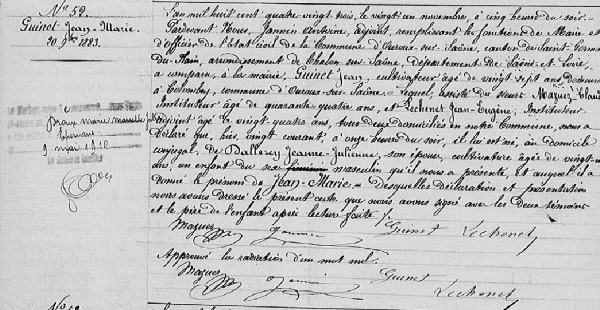 N° 52.
Guinet Jean-Marie.
20 9bre 1883.
L'an mil huit cent quatre vingt trois, le vingt un novembre, à cinq heures du soir.
Pardevant Nous, Jannin Antoine, adjoint, remplissant les fonctions de Maire et
d'Officier de l'Etat civil de la Commune d'Ouroux-sur-Saône, canton de Saint-Germain-
du-Plain, arrondissement de Chalon sur Saône, département de Saône et Loire,
a comparu, à la mairie, Guinet Jean, cultivateur âgé de vingt sept ans, demeurant
à Colombey, commune d'Ouroux-sur-Saône. Lequel, assisté des sieurs Mazuez
Instituteur âgé de quarante quatre ans, et Lechenet Jean-Eugène, Instituteur
adjoint âgé de vingt-quatre ans, tous deux domiciliés en notre Commune, nous a
déclaré que hier, vingt courant, à onze heures du soir, il lui est né, au domicile
conjugal, de Ballerey Jeanne-Julienne, son épouse, cultivatrice âgée de vingt-
ans, un enfant du sexe féminin masculin qu'il nous a présenté, et auquel il a
donné le prénom de Jean-Marie. Desquelles déclaration et présentation
nous avons dressé le présent acte que nous avons signé avec les deux témoins
et le père de l'enfant après lecture faite
Mazuez Jannin Guinet Lechenet
Approuvé la radiation d'un mot nul.
Mazuez Jannin Guinet
Lechenet
9 mai 1910